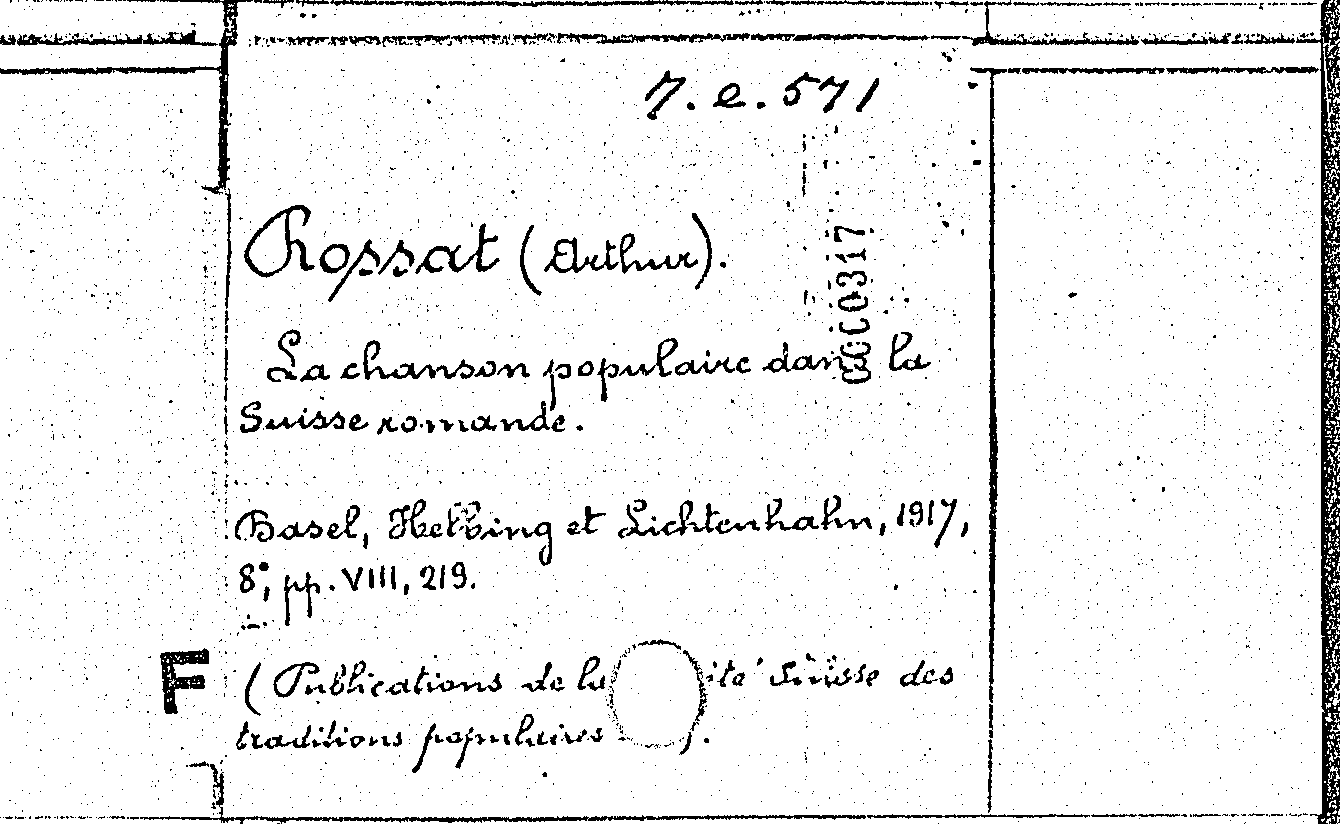 7. e. 571
Rossat (Arthur).
0000317
La chanson populaire dans la
Suisse romande.
Basel, Helbing et Lichtenhahn, 1917,
8°, pp. VIII, 219.
F
(Publications de la ité Suisse des
traditions populaires ).